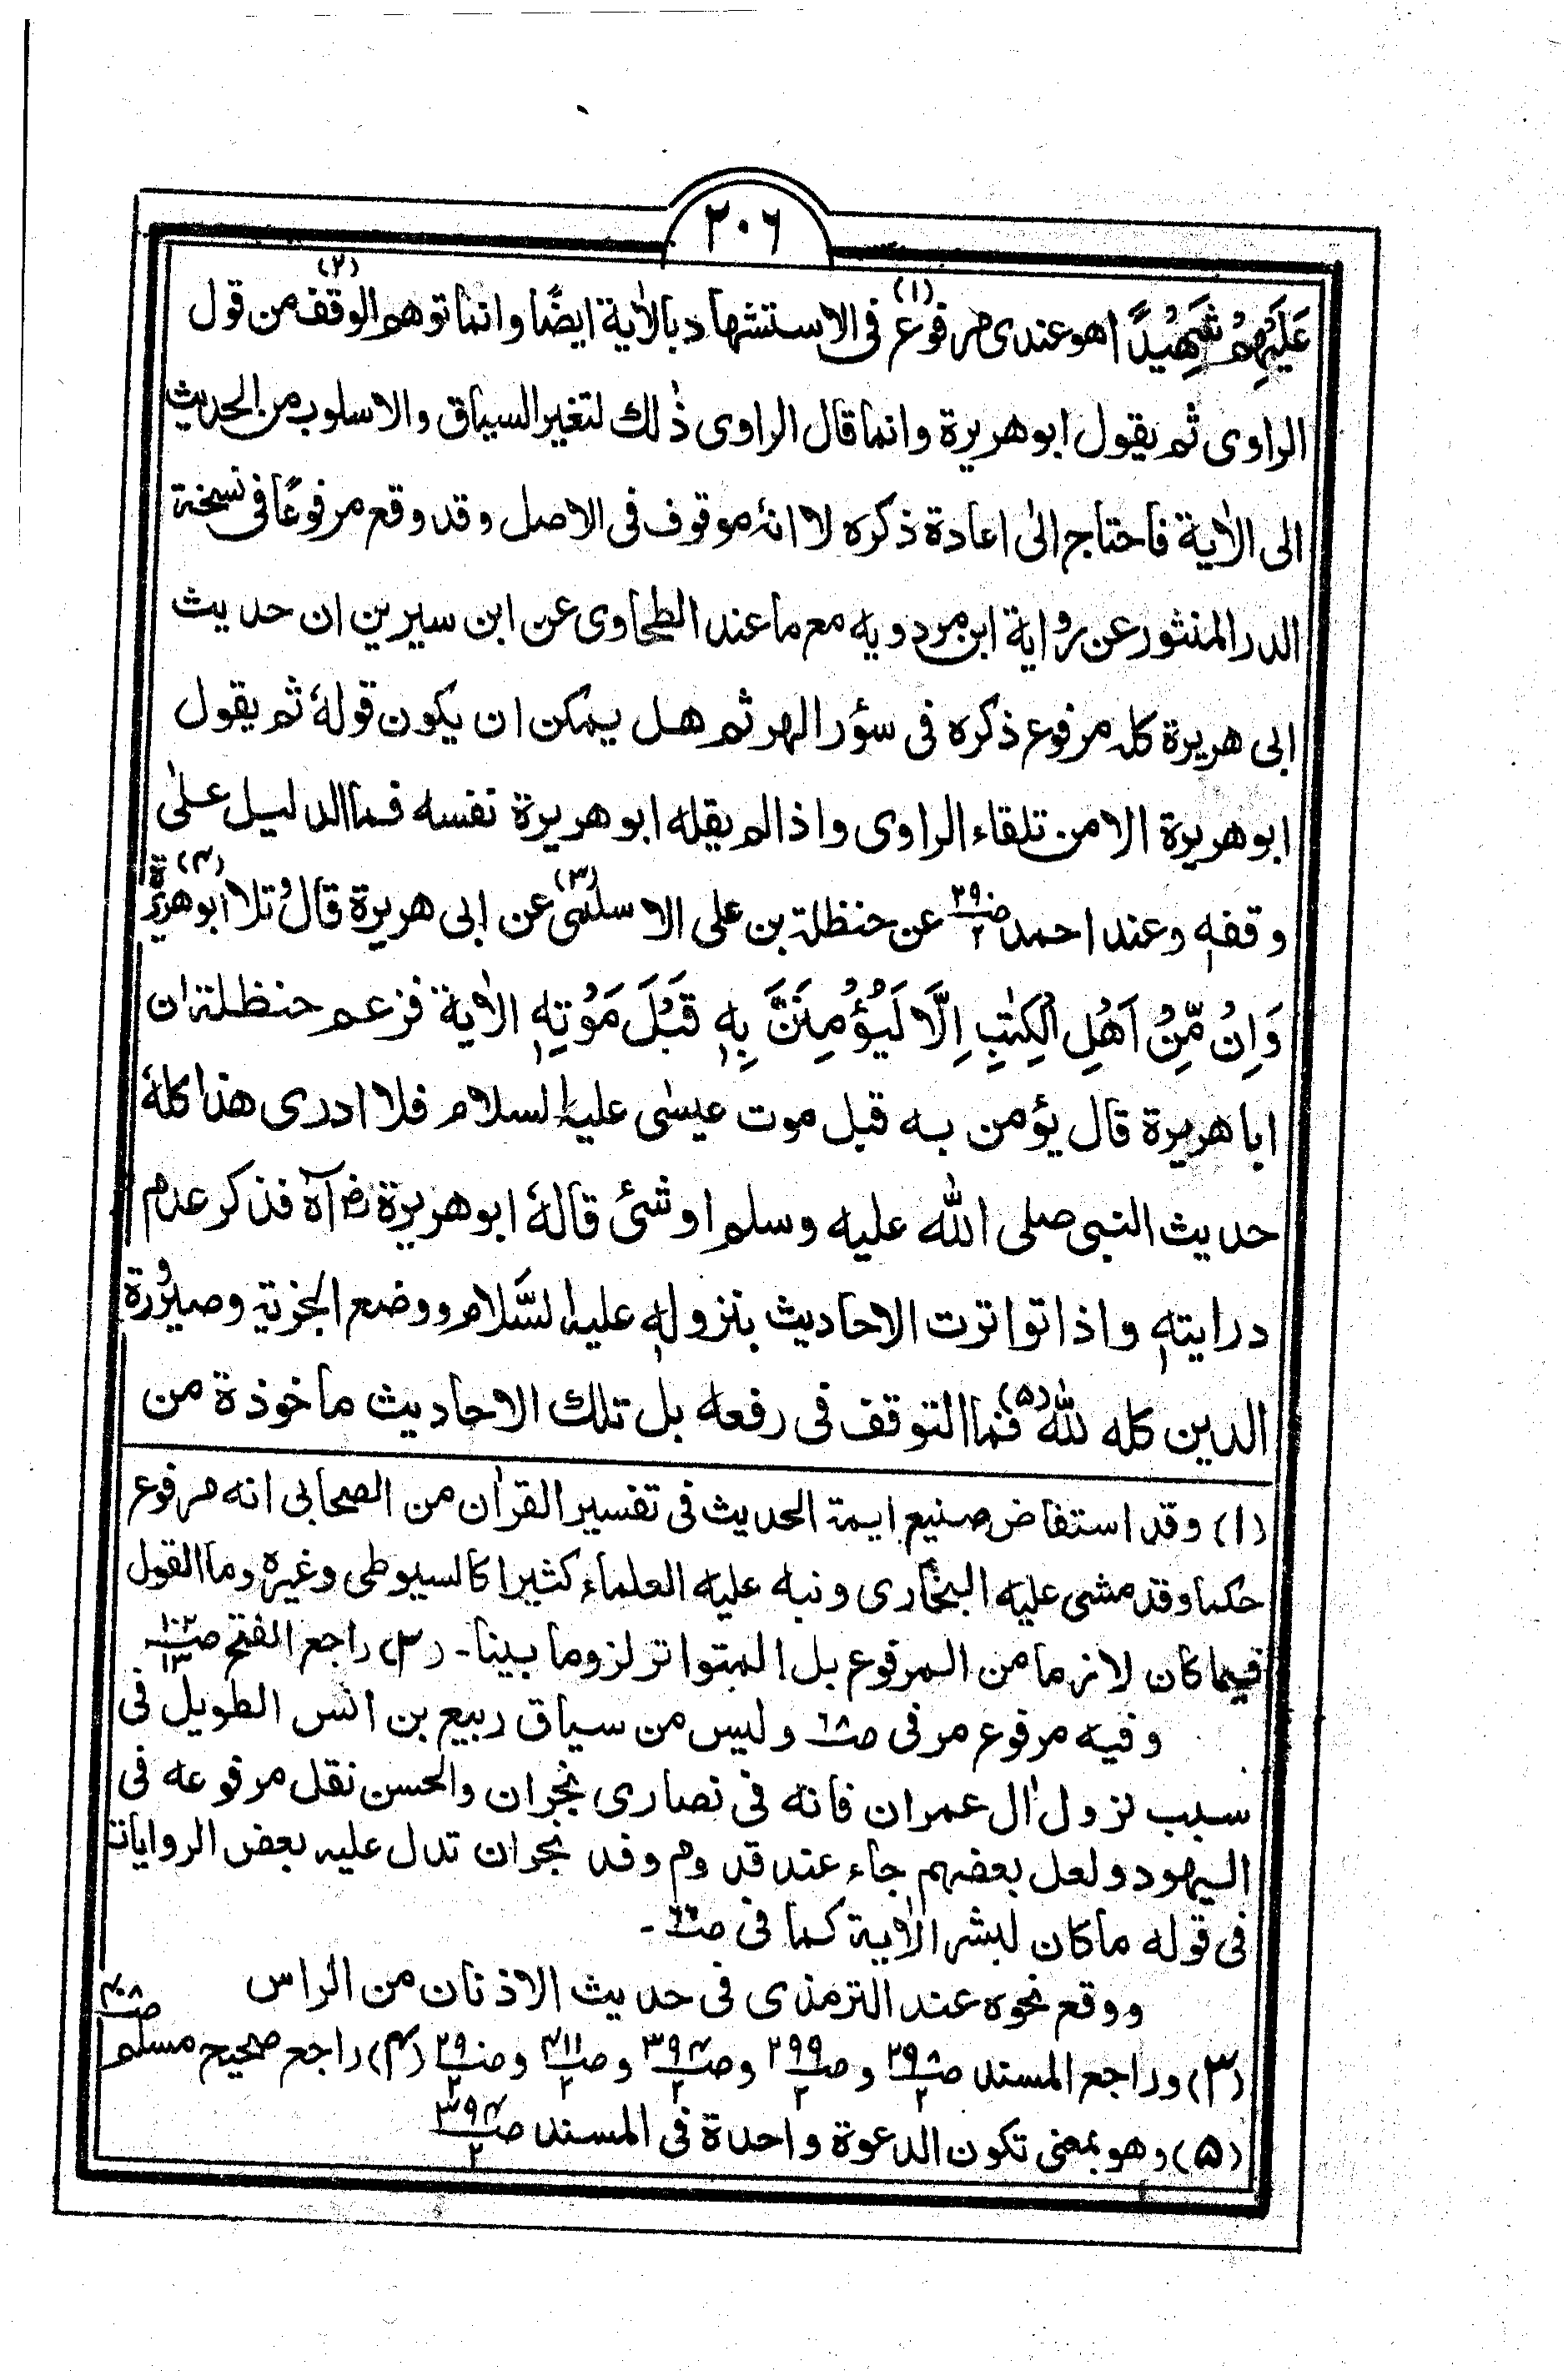 ٢٠٦
عَلَيْهِمْ شَهِيْدًا اهو عندى مرفوع (١) فى الاستشهاد بالاٰية ايضًا وانما توهم الوقف (٢) من قول
الراوى ثم يقول ابوهريرة وانما قال الراوى ذٰلك لتغير السياق والاسلوب من الحديث
الى الاٰية فاحتاج الىٰ اعادة ذكره لا انهٗ موقوف فى الاصل وقد وقع مرفوعًا فى نسخة
الدر المنثور عن رواية ابن مردويه مع ما عند الطحاوى عن ابن سيرين ان حديث
ابى هريرة كله مرفوع ذكره فى سؤر الهر ثم هل يمكن ان يكون قولهٗ ثم يقول
ابوهريرة الا من تلقاء الراوى واذا لم يقله ابوهريرة نفسه فما الدليل علىٰ
وقفهٖ وعند احمد ص٢٩٠/٢ عن حنظلة بن على الاسلمى (٣) عن ابى هريرة قال وتلا ابوهريرة (٤)
وَاِنْ مِّنْ اَهْلِ الْكِتٰبِ اِلَّا لَيُؤْمِنَنَّ بِهٖ قَبْلَ مَوْتِهٖ الاٰية فزعم حنظلة ان
ابا هريرة قال يؤمن به قبل موت عيسٰى عليه السلام فلا ادرى هذا كلهٗ
حديث النبى صلى الله عليه وسلم او شئ قالهٗ ابوهريرة رض اٰه فذكر عدم
درايتهٖ واذا تواترت الاحاديث بنزولهٖ عليه السَّلام ووضع الجزية وصيرورة
الدين كله لله (٥) فما التوقف فى رفعه بل تلك الاحاديث ماخوذة من
(١) وقد استفاض صنيع ايمة الحديث فى تفسير القراٰن من الصحابى انه مرفوع
حكما وقد مشى عليه البخارى ونبه عليه العلماء كثيرا كالسيوطى وغيره وما القول
فيما كان لازما من المرفوع بل المتواتر لزوما بينا۔ (٢) راجع الفتح ص١٠٢/١٣
وفيه مرفوع مر فى ص٦٨ وليس من سياق ربيع بن انس الطويل فى
سبب نزول اٰل عمران فانه فى نصارى نجران والحسن نقل مرفوعه فى
اليهود ولعل بعضهم جاء عند قدوم وفد نجران تدل عليه بعض الروايات
فى قوله ماكان لبشر الاٰية كما فى ۔
ووقع نحوه عند الترمذى فى حديث الاذنان من الراس
(٣) وراجع المسند ص٢٩٨/٢ و ص٢٩٩/٢ و ص٣٩٤/٢ و ص٤١١/٢ و ص٢٩٠/٢ (٤) راجع صحيح مسلم ص٤٠٨
(٥) وهو بمعنى تكون الدعوة واحدة فى المسند ص٣٩٤/٢